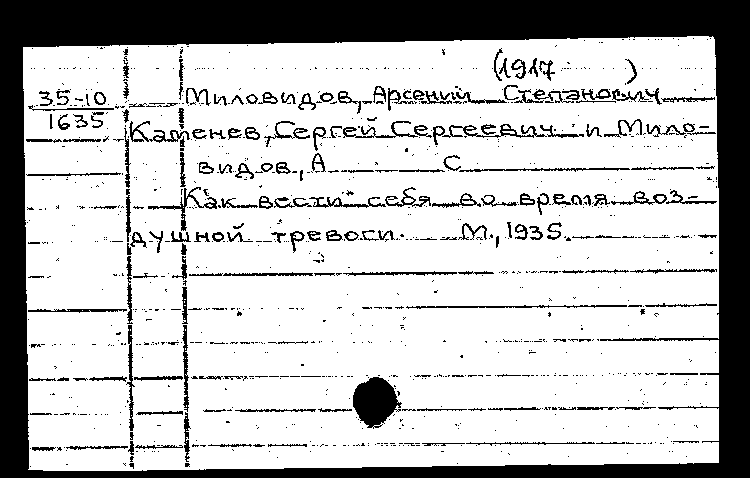 (1917 )
35-10 Миловидов, Арсений Степанович
1635 Каменев, Сергей Сергеевич и Мило-
видов, А С
Как вести себя во время воз-
душной тревоги. М., 1935.